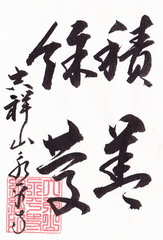 積善
餘慶
吉祥山永平寺